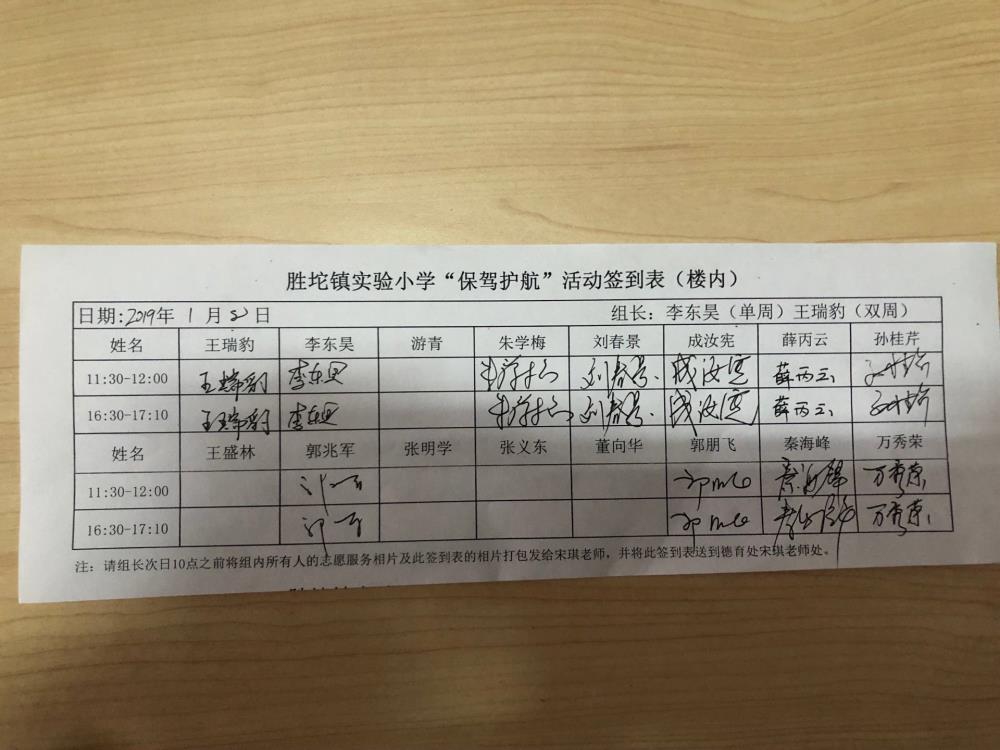 胜坨镇实验小学“保驾护航”活动签到表（楼内）
日期:2019年 1月 日 组长：李东昊（单周）王瑞豹（双周）
姓名 王瑞豹 李东昊 游青 朱学梅 刘春景 成汝宪 薛丙云 孙桂芹
11:30-12:00 王瑞豹 李东昊 朱学梅 刘春景 成汝宪 薛丙云 孙桂芹
16:30-17:10 王瑞豹 李东昊 朱学梅 刘春景 成汝宪 薛丙云 孙桂芹
姓名 王盛林 郭兆军 张明学 张义东 董向华 郭朋飞 秦海峰 万秀荣
11:30-12:00 秦海峰 万秀荣
16:30-17:10 秦海峰 万秀荣
注：请组长次日10点之前将组内所有人的志愿服务相片及此签到表的相片打包发给宋琪老师，并将此签到表送到德育处宋琪老师处。